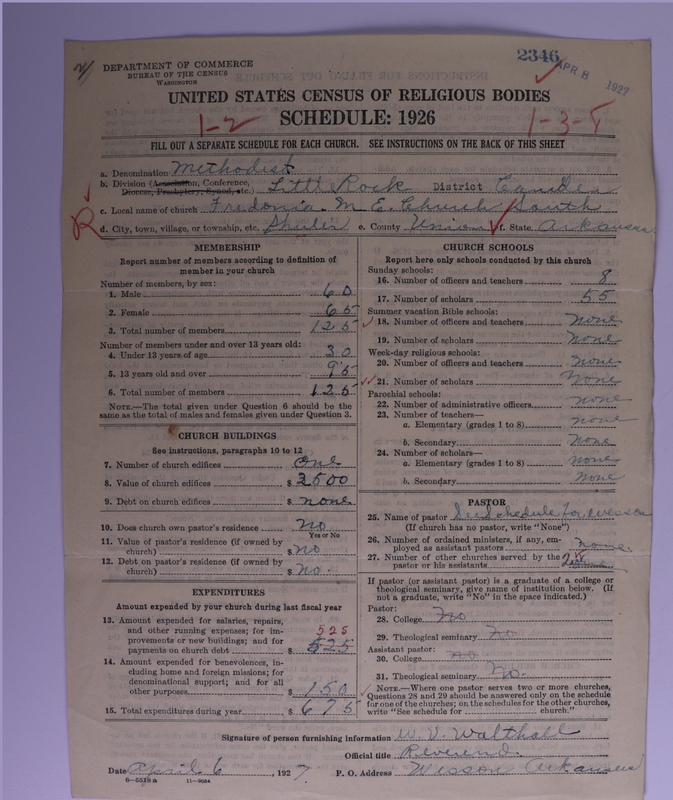 2346
APR 8 1927
DEPARTMENT OF COMMERCE
BUREAU OF THE CENSUS
WASHINGTON
UNITED STATES CENSUS OF RELIGIOUS BODIES
SCHEDULE: 1926
1-2
1-3-1
FILL OUT A SEPARATE SCHEDULE FOR EACH CHURCH. SEE INSTRUCTIONS ON THE BACK OF THIS SHEET
a. Denomination Methodist
b. Division (Association, Conference, Diocese, Presbytery, Synod, etc.) Little Rock District Camden
c. Local name of church Fredonia M E Church South
d. City, town, village, or township, etc. Shuler e. County Union f. State Arkansas
MEMBERSHIP
Report number of members according to definition of
member in your church
Number of members, by sex:
1. Male 60
2. Female 65
3. Total number of members 125
Number of members under and over 13 years old:
4. Under 13 years of age 30
5. 13 years old and over 95
6. Total number of members 125
NOTE.—The total given under Question 6 should be the
same as the total of males and females given under Question 3.
CHURCH BUILDINGS
See instructions, paragraphs 10 to 12
7. Number of church edifices One
8. Value of church edifices $ 2500
9. Debt on church edifices $ none
10. Does church own pastor's residence no
Yes or No
11. Value of pastor's residence (if owned by
church) $ no
12. Debt on pastor's residence (if owned by
church) $ no.
EXPENDITURES
Amount expended by your church during last fiscal year
13. Amount expended for salaries, repairs,
and other running expenses; for im-
provements or new buildings; and for
payments on church debt $ 525
525
14. Amount expended for benevolences, in-
cluding home and foreign missions; for
denominational support; and for all
other purposes $ 150
15. Total expenditures during year $ 675
CHURCH SCHOOLS
Report here only schools conducted by this church
Sunday schools:
16. Number of officers and teachers 8
17. Number of scholars 55
Summer vacation Bible schools:
18. Number of officers and teachers none
19. Number of scholars none
Week-day religious schools:
20. Number of officers and teachers none
21. Number of scholars none
Parochial schools:
22. Number of administrative officers none
23. Number of teachers—
a. Elementary (grades 1 to 8) none
b. Secondary none
24. Number of scholars—
a. Elementary (grades 1 to 8) none
b. Secondary none
PASTOR
25. Name of pastor See schedule for Wesson
(If church has no pastor, write "None")
26. Number of ordained ministers, if any, em-
ployed as assistant pastors none.
27. Number of other churches served by the
pastor or his assistants
If pastor (or assistant pastor) is a graduate of a college or
theological seminary, give name of institution below. (If
not a graduate, write "No" in the space indicated.)
Pastor:
28. College no
29. Theological seminary no
Assistant pastor:
30. College no
31. Theological seminary no.
NOTE.—Where one pastor serves two or more churches,
Questions 28 and 29 should be answered only on the schedule
for one of the churches; on the schedules for the other churches,
write "See schedule for church."
Signature of person furnishing information W. V. Walthall
Official title Reverend.
Date April 6, 1927. P. O. Address Wesson Arkansas
8—5518a 11—9034